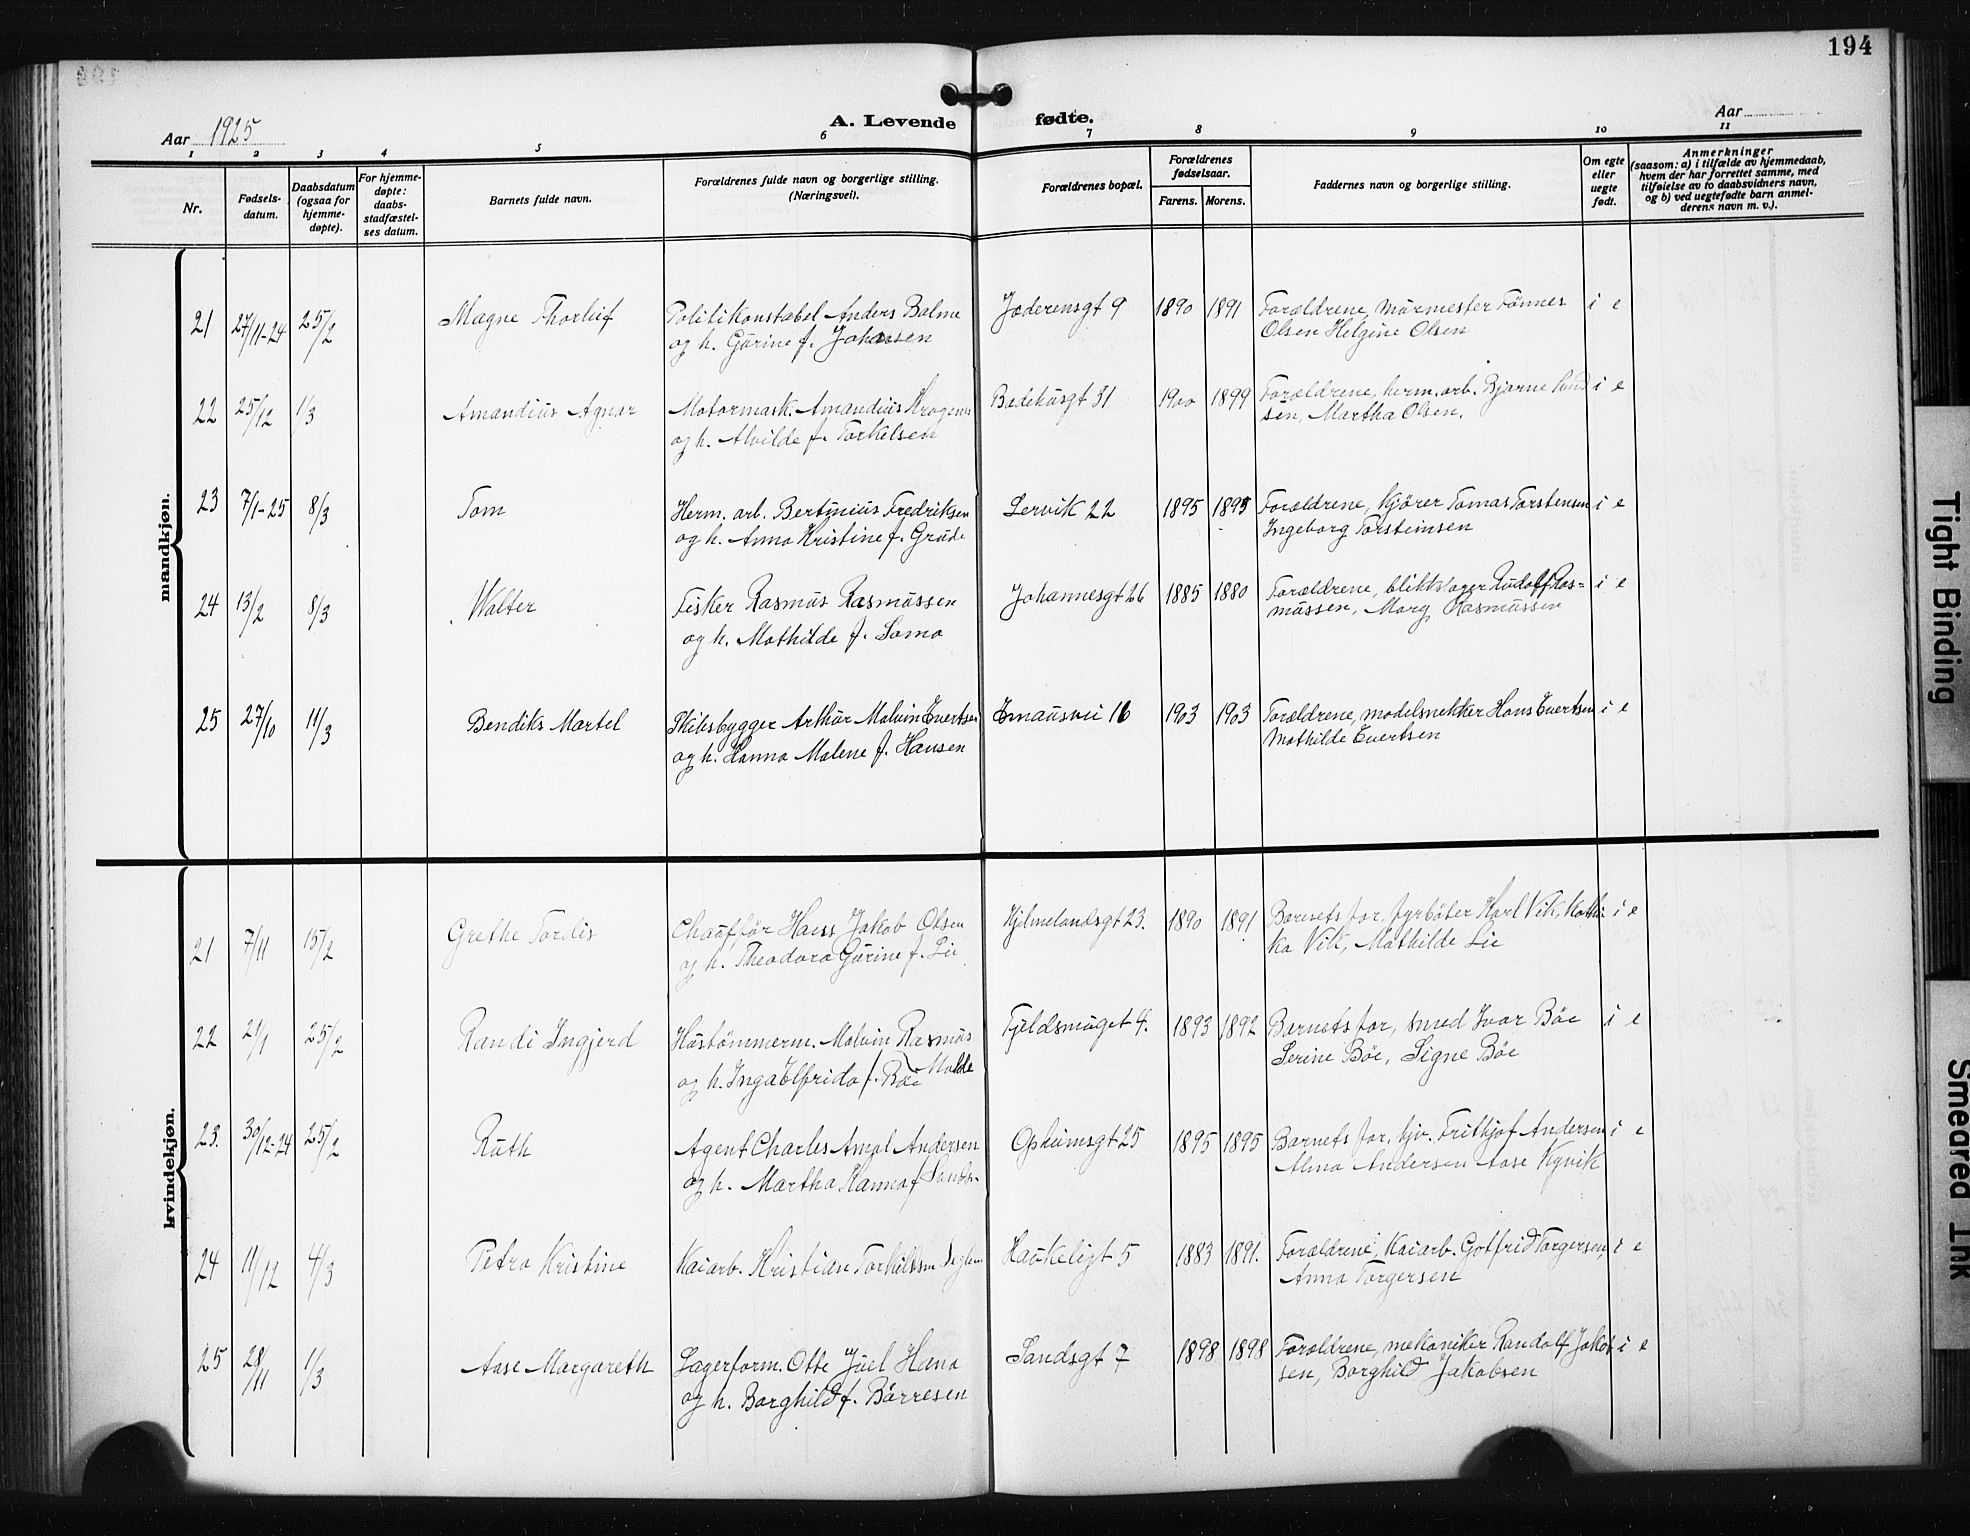 194
Aar 1925
A. Levende fødte.
Aar
1 2 3 4 5 6 7 8 9 10 11
Nr.
Fødsels-
datum.
Daabsdatum
(ogsaa for
hjemme-
døpte).
For hjemme-
døpte:
daabs-
stadfæstel-
ses datum.
Barnets fulde navn.
Forældrenes fulde navn og borgerlige stilling.
(Næringsvei).
Forældrenes bopæl.
Forældrenes
fødselsaar.
Farens. Morens.
Faddernes navn og borgerlige stilling.
Om egte
eller
uegte
født.
Anmerkninger
(saasom: a) i tilfælde av hjemmedaab,
hvem der har forrettet samme, med
tilføielse av to daabsvidners navn,
og b) ved uegtefødte barn anmel-
derens navn m. v.).
mandkjøn.
21 27/11-24 25/2 Magne Thorleif Politikonstabel Anders Bolme Jæderensgt 9 1890 1891 Forældrene, murmester Tønnes i e
og h. Gurine f. Johansen Olsen Helgine Olsen
22 25/12 1/3 Amandius Agnar Motormask. Amandius Krogenes Bedehusgt 31 1900 1899 Forældrene, herm. arb. Bjarne i e
og h. Alvilde f. Torkelsen sen, Martha Olsen.
23 7/1-25 8/3 Tom Herm. arb. Bertinius Fredriksen Lervik 22 1895 1895 Forældrene, kjører Tomas Torstensen i e
og h. Anna Kristine f. Grude Ingeborg Torsteinsen
24 13/2 8/3 Walter Fisker Rasmus Rasmussen Johannesgt 26 1885 1880 Forældrene, blikkslager Rudolf Ras= i e
og h. Mathilde f. Soma mussen, Marg Rasmussen
25 27/10 11/3 Bendiks Martel Skibsbygger Arthur Malvin Evertsen Emausvei 16 1903 1903 Forældrene, modelsnekker Hans Evertsen i e
og h. Hanna Malene f. Hansen Mathilde Evertsen
kvindekjøn.
21 7/11 15/2 Grethe Tordis Chauffør Hans Jakob Olsen Hjelmelandsgt 23. 1890 1891 Barnets far, fyrbøter Karl Vik, Kathi i e
og h. Theodora Gurine f. Lie ka Vik, Mathilde Lie
22 21/1 25/2 Randi Ingjerd Hustømmerm. Malvin Rasmus Fjeldsmuget 4. 1893 1892 Barnets far, smed Ivar Bøe i e
og h. Inga Elfrida f. Bøe Molde Serine Bøe, Signe Bøe
23. 30/12-24 25/2 Ruth Agent Charles Amal Andersen Opheimsgt 25 1895 1895 Barnets far, Frithjof Andersen i e
og h. Martha Hanna f Alma Andersen Aase Kyvik
24 11/12 4/3 Petra Kristine Kaiarb. Kristian Torkildsen Haukeligt 5 1883 1891. Forældrene, Kaiarb. Gotfrid Torgersen, i e
Anna Torgersen
25 28/11 1/3 Aase Margareth Lagerform. Otte Juel Hana Sandsgt 7 1898 1898 Forældrene, mekaniker Randolf Jakob i e
og h. Borghild f. Børresen sen, Borghild Jakobsen
Tight Binding
Smeared Ink